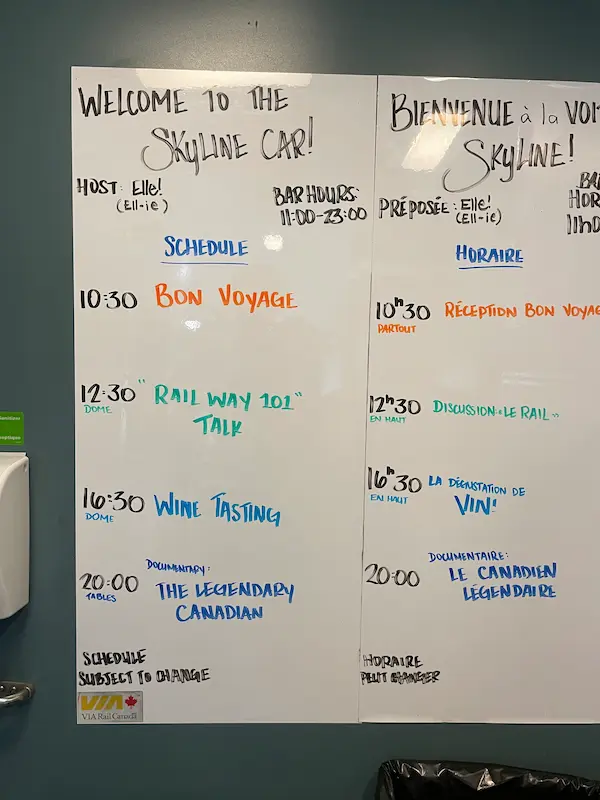 WELCOME TO THE
SKYLINE CAR!
HOST: Elle!
(Ell-ie)
BAR HOURS:
11:00-23:00
SCHEDULE
10:30 BON VOYAGE
12:30 "RAILWAY 101"
DOME
TALK
16:30 WINE TASTING
DOME
DOCUMENTARY:
20:00 THE LEGENDARY
TABLES
CANADIAN
SCHEDULE
SUBJECT TO CHANGE
VIA
VIA Rail Canada
BIENVENUE à la
SKYLINE!
PRÉPOSÉE: Elle!
(Ell-ie)
HORAIRE
10h30 RÉCEPTION BON
PARTOUT
12h30 DISCUSSION «LE RAIL»
EN HAUT
16h30 LA DÉGUSTATION DE
EN HAUT
VIN!
DOCUMENTAIRE:
20:00 LE CANADIEN
LÉGENDAIRE
HORAIRE
PEUT CHANGER